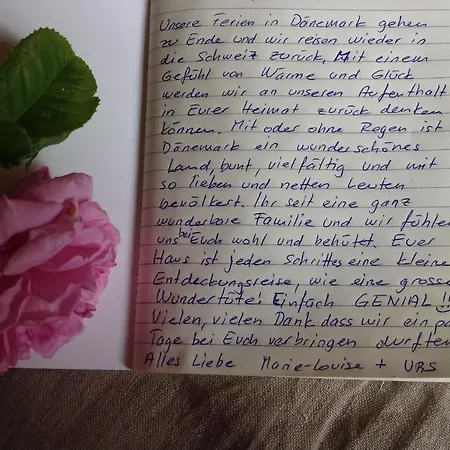 Unsere Ferien in Dänemark gehen
zu Ende und wir reisen wieder in
die Schweiz zurück. Mit einem
Gefühl von Wärme und Glück
werden wir an unseren Aufenthalt
in Eurer Heimat zurück denken
können. Mit oder ohne Regen ist
Dänemark ein wunderschönes
Land, bunt, vielfältig und mit
so lieben und netten Leuten
bevölkert. Ihr seit eine ganz
wunderbare Familie und wir fühlen
uns bei Euch wohl und behütet. Euer
Haus ist jeden Schrittes eine kleine
Entdeckungsreise, wie eine grosse
Wundertüte! Einfach GENIAL!!
Vielen, vielen Dank dass wir ein pa
Tage bei Euch verbringen durften
Alles Liebe Marie-Louise + URS